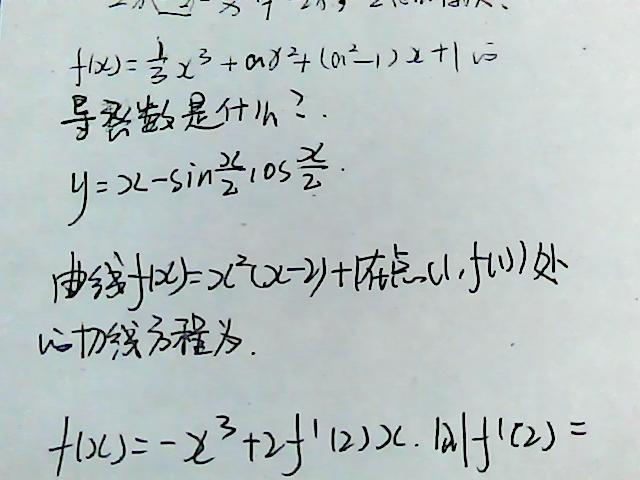 f(x)=\frac{1}{3}x³+ax²+(a²-1)x+1的
导函数是什么?
y=x-sin\frac{x}{2}cos\frac{x}{2}.
曲线f(x)=x²(x-2)+1在点(1,f(1))处
的切线方程为.
f(x)=-x³+2f'(2)x.则f'(2)=